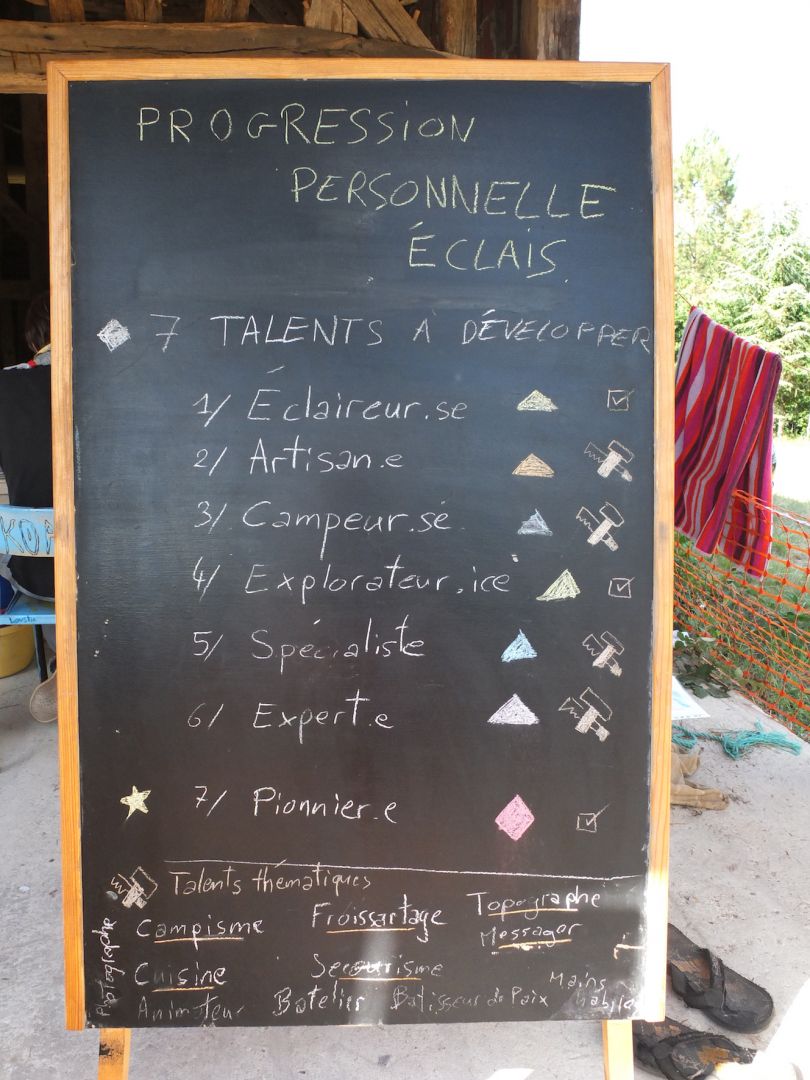 PROGRESSION
PERSONNELLE
ÉCLAIS.
7 TALENTS À DÉVELOPPER
1/ Éclaireur.se
2/ Artisan.e
3/ Campeur.se
4/ Explorateur.ice
5/ Spécialiste
6/ Expert.e
7/ Pionnier.e
Talents thématiques
Campisme Froissartage Topographe
Messager
Cuisine Secourisme
Animateur Batelier Batisseur de Paix Mains habiles
Photographe
KOA